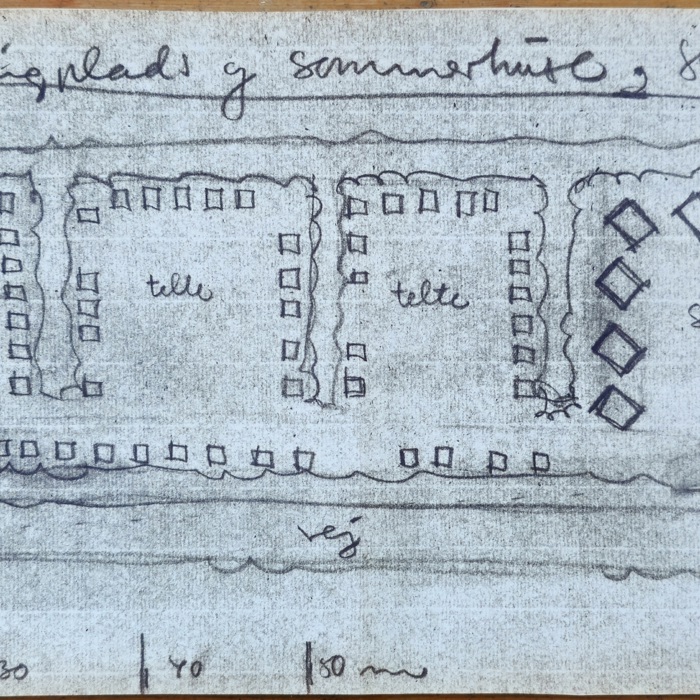 ngplads og sommerhuse, S
telte telte
S
vej
30 40 50 m